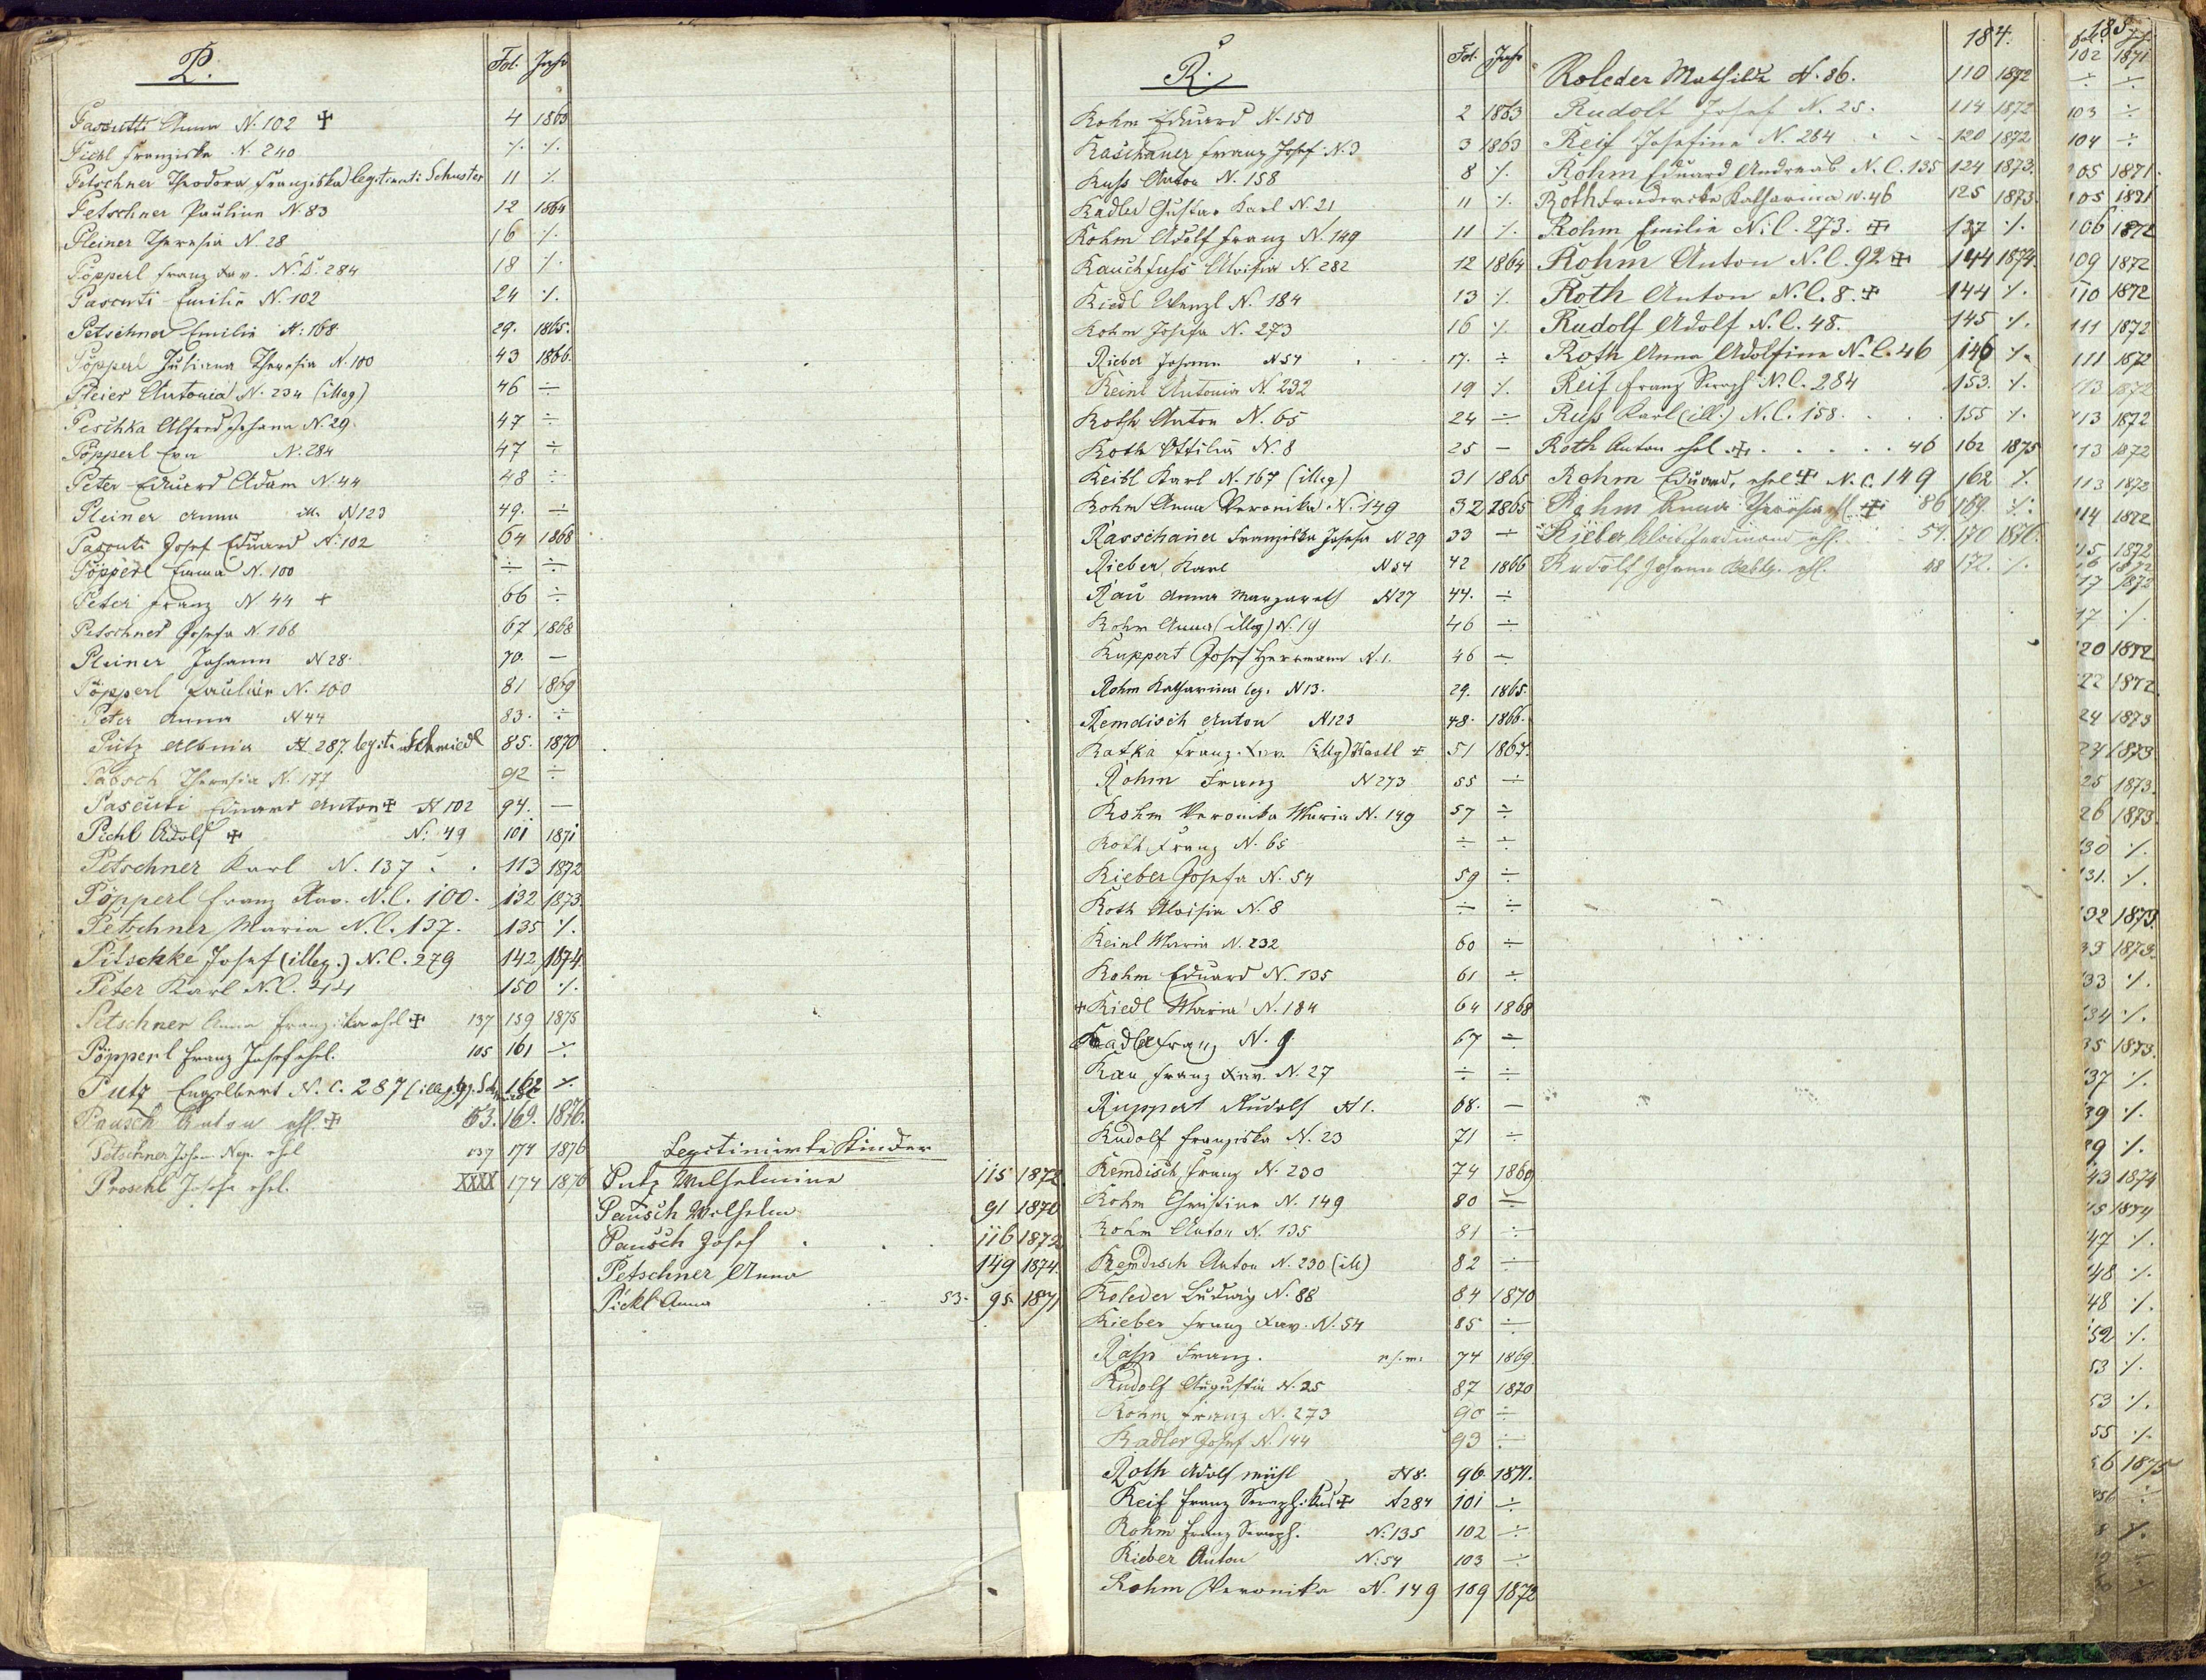 P.
Fol. Jahr
Pascutti Anna N. 102 ✠ 4 1863
Pichl Franziska N. 240 ⁒ ⁒
Petschner Theodora Franziska legitimirte Schuster 11 ⁒
Petschner Pauline N. 83 12 1864
Pleiner Theresia N. 28 16 ⁒
Pöpperl Franz Xav. N. 284 18 ⁒
Pascuti Emilie N. 102 24 ⁒
Petschner Emilie N. 168 29. 1865.
Pöpperl Juliana Theresia N. 100 43 1866.
Pleier Antonia N. 234 (illeg) 46 ÷
Peschka Alfred Johann N. 29. 47 ÷
Pöpperl Eva N. 284 47 ÷
Peter Eduard Adam N. 44 48 ÷
Pleiner Anna ill. N 123 49. ÷
Pascuti Josef Eduard N. 102 64 1868
Pöpperl Emma N. 100 ÷ ÷
Peter Franz N 44 + 66 ÷
Petschner Josefa N. 168 67 1868
Pleiner Johann N 28. 70. —
Pöpperl Pauline N. 100 81 1869
Peter Anna N 44 83. ÷
Pütz Albina N 287. legit. Schmiedl 85. 1870
Pabsch Theresia N. 177 92 ÷
Pascuti Eduard Anton ✠ N 102 94. —
Pichl Adolf ✠ N. 49 101 1871
Petschner Karl N. 137 113 1872
Pöpperl Franz Xav. N.C. 100. 132 1873.
Petschner Maria N.C. 137. 135 ⁒
Pitschke Josef (illeg.) N.C. 279 142 1874
Peter Karl N.C. 44 150 ⁒
Petschner Anna Franziska ehel ✠ 137 159 1875
Pöpperl Franz Josef ehel. 105 161 ÷
Putz Engelbert N.C. 287 (illeg.) 162 ⁒
Pausch Anton ehl. ✠ 53. 169. 1876.
Petschner Johann Nep. ehel 137 174 1876
Proschl Josefa ehel. XXXX 174 1876
Legitimirte Kinder
Putz Wilhelmine 115 1872.
Pausch Wilhelm 91 1870
Pausch Josef 116 1872
Petschner Anna 149 1874.
Pickl Anna 53. 95. 1871
R.
Fol. Jahr
Rohm Eduard N. 150 2 1863
Raschauer Franz Josef N. 3 1863
Russ Anton N. 158 8 ⁒
Radler Gustav Karl N. 21 11 ⁒
Rohm Adolf Franz N. 149 11 ⁒
Rauchfuss Aloisia N. 282 12 1864
Riedl Wenzl N. 184 13 ⁒
Rohm Josefa N. 273 16 ⁒
Rieber Johann N 54 17. ÷
Reinl Antonia N. 232 19 ⁒
Roth Anton N. 65 24 ÷
Roth Ottilia N. 8 25 —
Reibl Karl N. 167 (illeg) 31 1865
Rohm Anna Veronika N. 149 32 1865
Rasschauer Franziska Josefa N 29 33 ÷
Rieber Karl N 54 42 1866
Rau Anna Margareth N 27 44. ÷
Rohm Anna (illeg) N. 19 46 ÷
Ruppert Josef Hermann N. 1. 46 —
Rohm Katharina leg. N 13. 29. 1865.
Remdisch Anton N 123 48. 1866.
Ratka Franz Xav. (illeg) ✠ 51 1867.
Rohm Franz N 273 55 ÷
Rohm Veronika Maria N. 149 57 ÷
Roth Franz N. 65 ÷ ÷
Rieber Josefa N. 54 59 ÷
Roth Aloisia N. 8 ÷ ÷
Reinl Maria N. 232 60 ÷
Rohm Eduard N. 135 61 ÷
✠ Riedl Maria N. 184 64 1868
Radler Franz N. 9 67 ÷
Rau Franz Xav. N. 27 ÷ ÷
Ruppert Rudolf N 1. 68. —
Rudolf Franziska N. 23 71 ÷
Remdisch Franz N. 230 74 1869
Rohm Christine N. 149 80 ÷
Rohm Anton N. 135 81 ÷
Remdisch Anton N. 230 (ill) 82 ÷
Roleder Ludwig N. 88 84 1870
Rieber Franz Xav. N. 54 85 ÷
Rasp Franz. 74 1869
Rudolf Augustin N. 25 87 1870
Rohm Franz N. 273 90 ÷
Radler Josef N. 144 93 ÷
Roth Adolf N 8. 96. 1871.
Reif Franz Seraph. ✠ N 284 101 ÷
Rohm Franz Seraph. N. 135 102 ÷
Rieber Anton N. 54 103 ÷
Rohm Veronika N. 149 109 1872
184.
Roleder Mathilde N. 86. 110 1872
Rudolf Josef N. 25. 114 1872
Reif Josefine N. 284 120 1872
Rohm Eduard Andreas N.C. 135 124 1873.
Roth Friedericke Katharina N. 46 125 1873.
Rohm Emilie N.C. 273. ✠ 137 ⁒
Rohm Anton N.C. 92 ✠ 144 1874.
Roth Anton N.C. 8. ✠ 144 ⁒
Rudolf Adolf N.C. 48. 145 ⁒
Roth Anna Adolfine N.C. 46 146 ⁒
Reif Franz Seraph N.C. 284 153. ⁒
Russ Karl (ill.) N.C. 158. 155 ⁒
Roth Anton ehel. ✠ 46 162 1875
Rohm Eduard, ehel ✠ N.C. 149 162 ⁒
Rohm Anna Theresia ehl ✠ 86 169. ⁒
Rieber Alois Ferdinand ehl. 59. 170 1876.
Rudolf Johann Baptz. ehl. 48 172. ⁒
185
102 1871
÷ ÷
103 ÷
104 ÷
105 1871.
105 1871
106 1872
109 1872
110 1872
111 1872
111 1872
113 1872
113 1872
113 1872
113 1872
114 1872
115 1872
16 1872
17 1872
17 ⁒
120 1872
122 1872.
24 1873
24 1873
25 1873.
26 1873.
130 ⁒
131. ⁒
132 1873.
33 1873.
133 ⁒
134 ⁒
35 1873.
137 ⁒
39 ⁒
39 ⁒
143 1874
45 1874
47 ⁒
48 ⁒
48 ⁒
52 ⁒
53 ⁒
53 ⁒
55 ⁒
56 1875